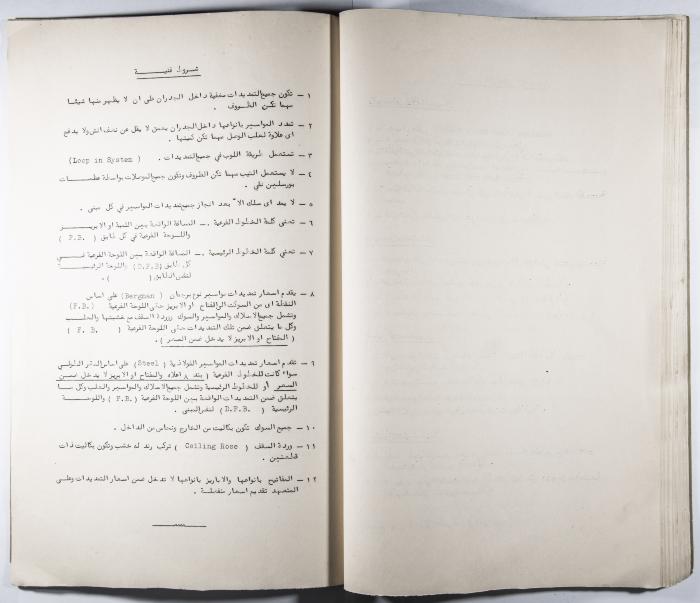 شروط فنيـــــة
١ – تكون جميع التمديدات مخفية داخل الجدران على ان لا يظهر منها شيئا
مهما تكن الظــروف .
٢ – تمدد المواسير بانواعها داخل الجدران بعمق لا يقل عن نصف انش ولا يدفع
اى علاوة لعلب الوصل مهما تكن كميتها .
٣ – تستعمل طريقة اللوب في جميع التمديدات . (Loop in System)
٤ – لا يستعمل التيب مهما تكن الظروف وتكون جميع الموصلات بواسطة
بورسلين على .
٥ – لا يمد اى سلك الا بعد انجاز جميع تمديدات المواسير في كل مبنى .
٦ – تعني كلمة الخطوط الفرعية .– المسافة الواقعة بين اللمبة او الابريـــز
واللوحة الفرعية في كل طابق ( F.B. )
٧ – تعني كلمة الخطوط الرئيسية .– المسافة الواقعة بين اللوحة الفرعية فــي
كل طابق (D.F.B) واللوحة الرئيســة
لنفس الطابق ( ) .
٨ – يقدم اسعار تمديدات مواسير نوع برجمان (Bergman) على اساس
النقطة اى من السوكت الى المفتاح او الابريز حتى اللوحة الفرعية (F.B.)
وتشمل جميع الاسلاك والمواسير والسوك ووردة السقف مع خشبتها والعلــب
وكل ما يتعلق ضمن تلك التمديدات حتى اللوحة الفرعية ( F. B. )
( المفتاح او الابريز لا يدخل ضمن السعر ) .
٩ – تقدم اسعار تمديدات المواسير الفولاذية (Steel) على اساس المتر الطولــي
سواء كانت للخطوط الفرعية (بند ٨ اعلاه والمفتاح او الابريز لا يدخل ضمــن
السعر) او للخطوط الرئيسية وتشمل جميع الاسلاك والمواسير والعلب وكل مــا
يتعلق ضمن التمديدات الواقعة بين اللوحة الفرعية (F.B.) واللوحـــة
الرئيسية ( D.F.B. ) لنفس المبنى .
١٠ – جميع السوك تكون بكاليت من الخارج ونحاس من الداخل .
١١ – وردة السقف ( Ceiling Rose ) تركب رند له خشب وتكون بكاليت ذات
قطعتين .
١٢ – المفاتيح بانواعها والاباريز بانواعها لا تدخل ضمن اسعار التمديدات وعلى
المتعهد تقديم اسعار منفصلة .